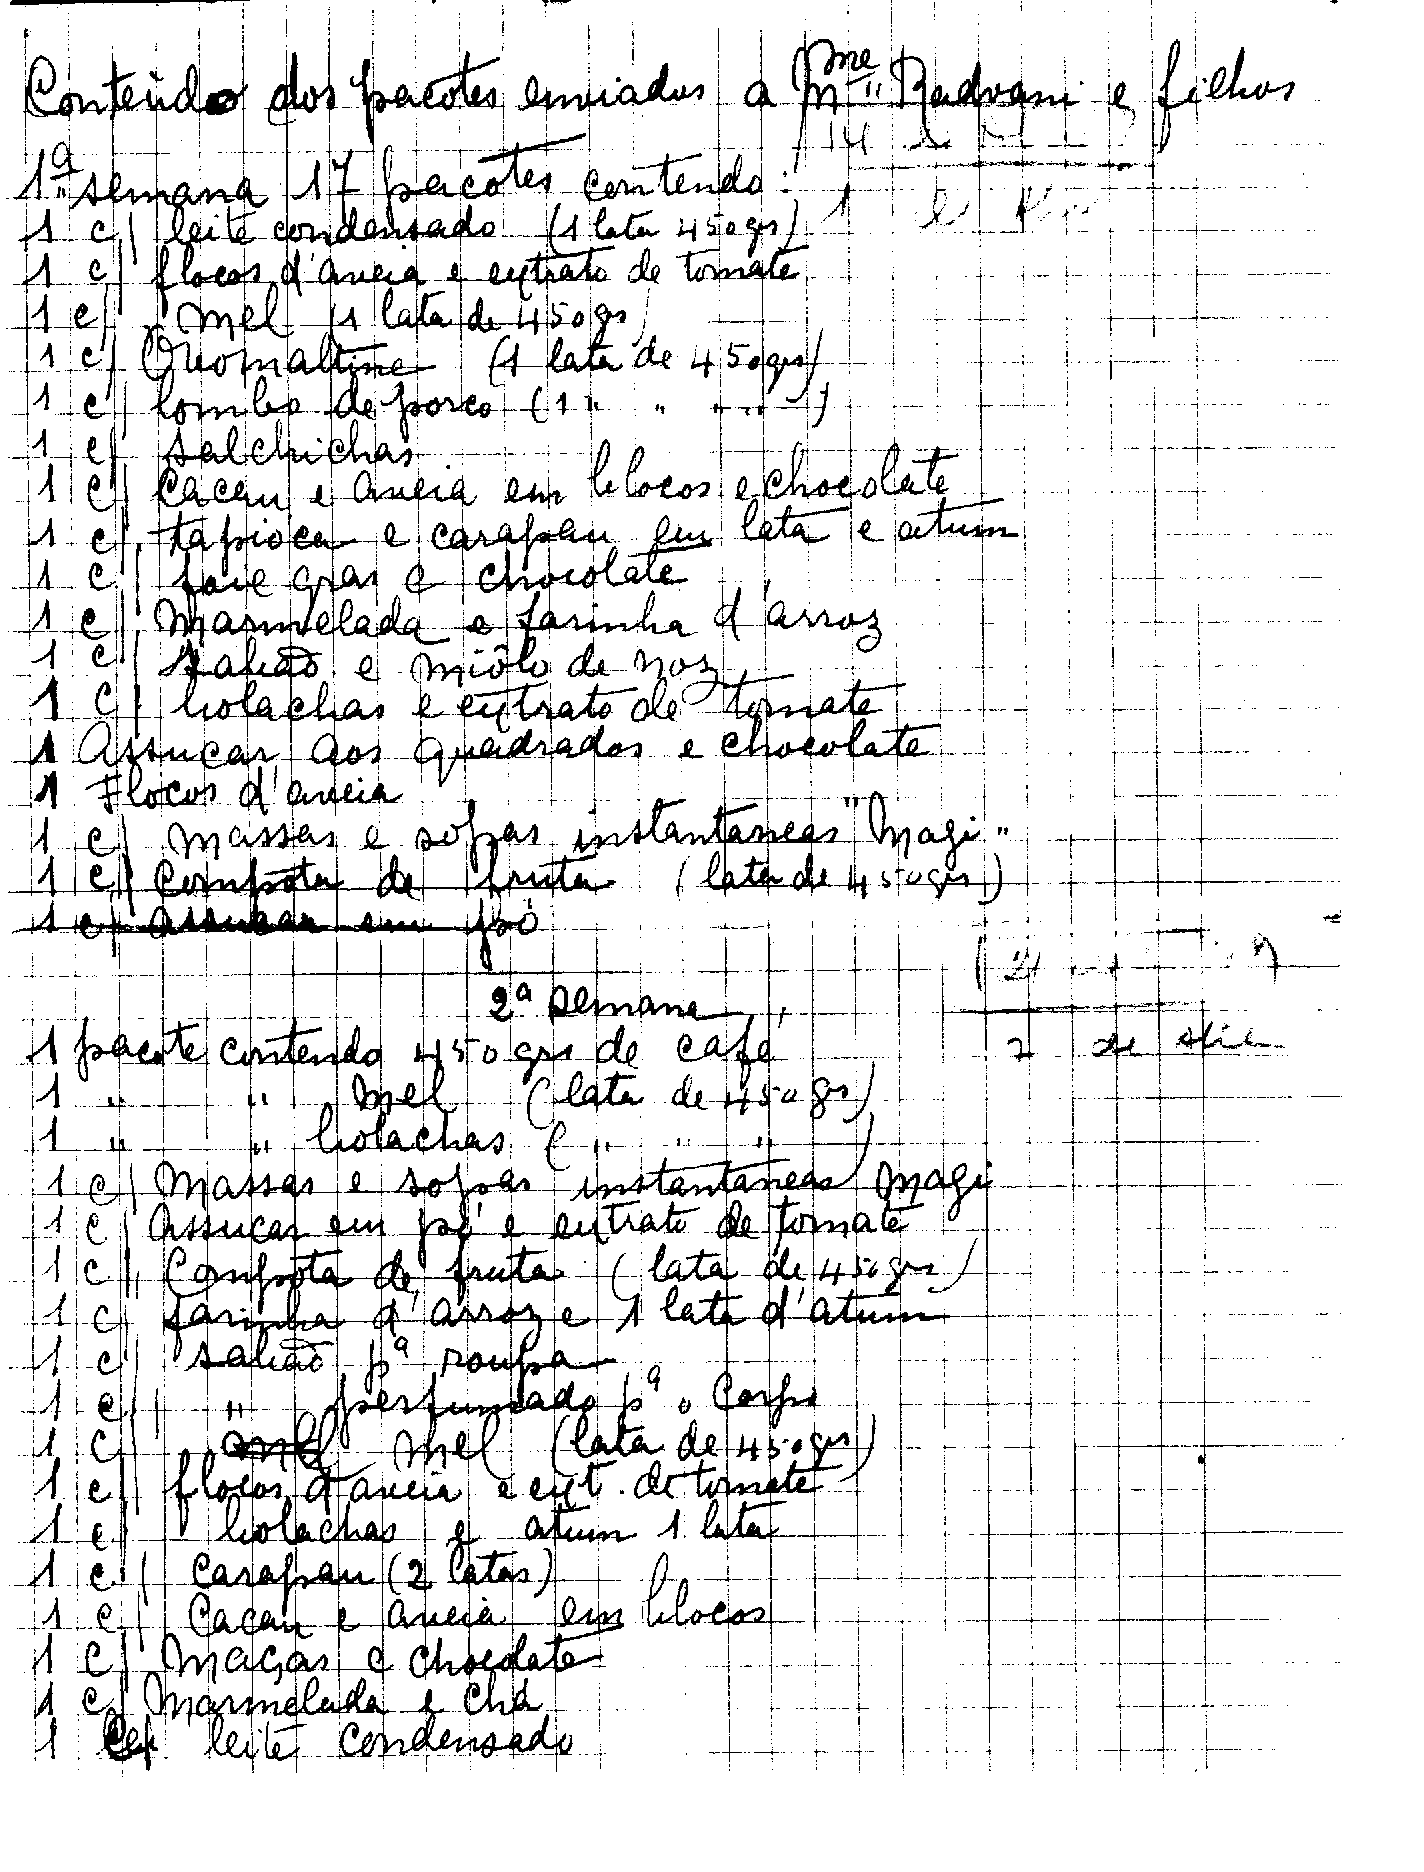 Conteúdo dos pacotes enviados a Mme Radvani e filhos
1ª semana 17 pacotes contendo:
1 c/ leite condensado (1 lata 450grs)
1 c/ flocos d'aveia e extrato de tomate
1 c/ mel (1 lata de 450grs)
1 c/ Ovomaltine (1 lata de 450grs)
1 c/ lombo de porco (1 " " " " )
1 c/ salchichas
1 c/ Cacau e aveia em blocos e chocolate
1 c/ tapioca e carapau em lata e atum
1 c/ foie gras e chocolate
1 c/ Marmelada e farinha d'arroz
1 c/ sabão e miôlo de noz
1 c/ bolachas e extrato de tomate
1 Assucar aos quadrados e chocolate
1 Flocos d'aveia
1 c/ massas e sopas instantaneas "Magi"
1 c/ Compota de fruta (lata de 450grs)
1 c/ assucar em pó
2ª semana
1 pacote contendo 450 grs de café
1 " " mel (lata de 450 grs)
1 " " bolachas ( " " " )
1 c/ Massas e sopas instantaneas Magi
1 c/ Assucar em pó e extrato de tomate
1 c/ Compota de fruta (lata de 450grs)
1 c/ farinha d'arroz e 1 lata d'atum
1 c/ sabão pª roupa
1 c/ " perfumado pª o Corpo
1 c/ mel mel (lata de 450grs)
1 c/ flocos d'aveia e ext. de tomate
1 c/ bolachas e atum 1 lata
1 c/ Carapau (2 latas)
1 c/ Cacau e aveia em blocos
1 c/ Maçãs e chocolate
1 c/ Marmelada e Chá
1 c/ leite condensado